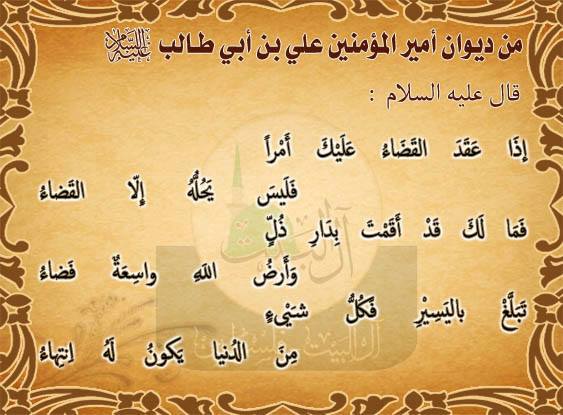 من ديوان أمير المؤمنين علي بن أبي طالب عليه السلام
قال عليه السلام :
إِذَا عَقَدَ القَضَاءُ عَلَيْكَ أَمْراً
فَلَيسَ يَحُلُّهُ إِلّا القَضاءُ
فَمَا لَكَ قَدْ أَقَمْتَ بِدَارِ ذُلٍّ
وَأَرضُ اللهِ واسِعَةٌ فَضاءُ
تَبَلَّغْ باليَسِيْرِ فَكُلُّ شَيْءٍ
مِنَ الدُنيا يَكونُ لَهُ اِنتِهاءُ
آل البيت